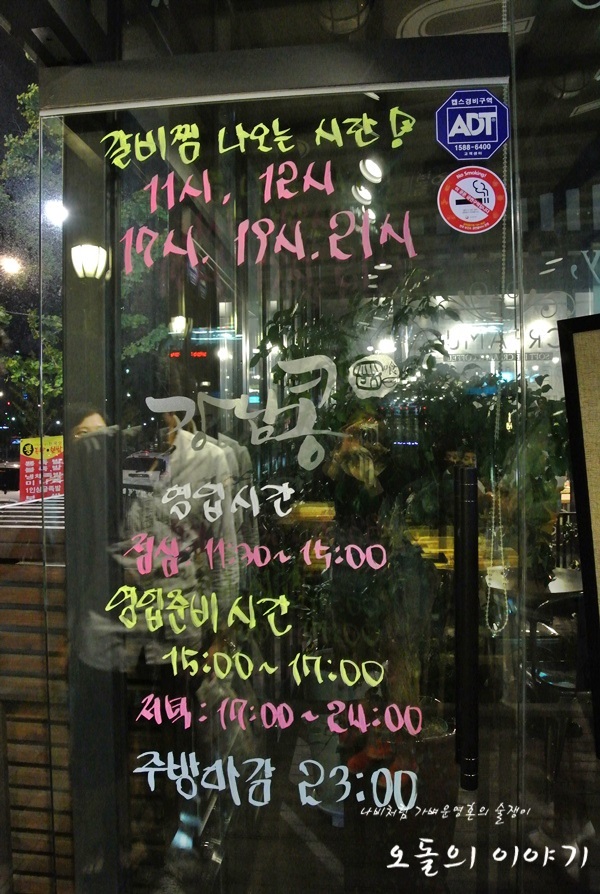 갈비찜 나오는 시간!
11시, 12시
17시. 19시. 21시
캡스경비구역
ADT
1588-6400
고객센터
No Smoking!
강남콩
영업시간
점심: 11:30~15:00
영업준비시간
15:00~17:00
저녁: 17:00~24:00
주방마감 23:00
나비처럼 가벼운영혼의 술쟁이
오돌의 이야기